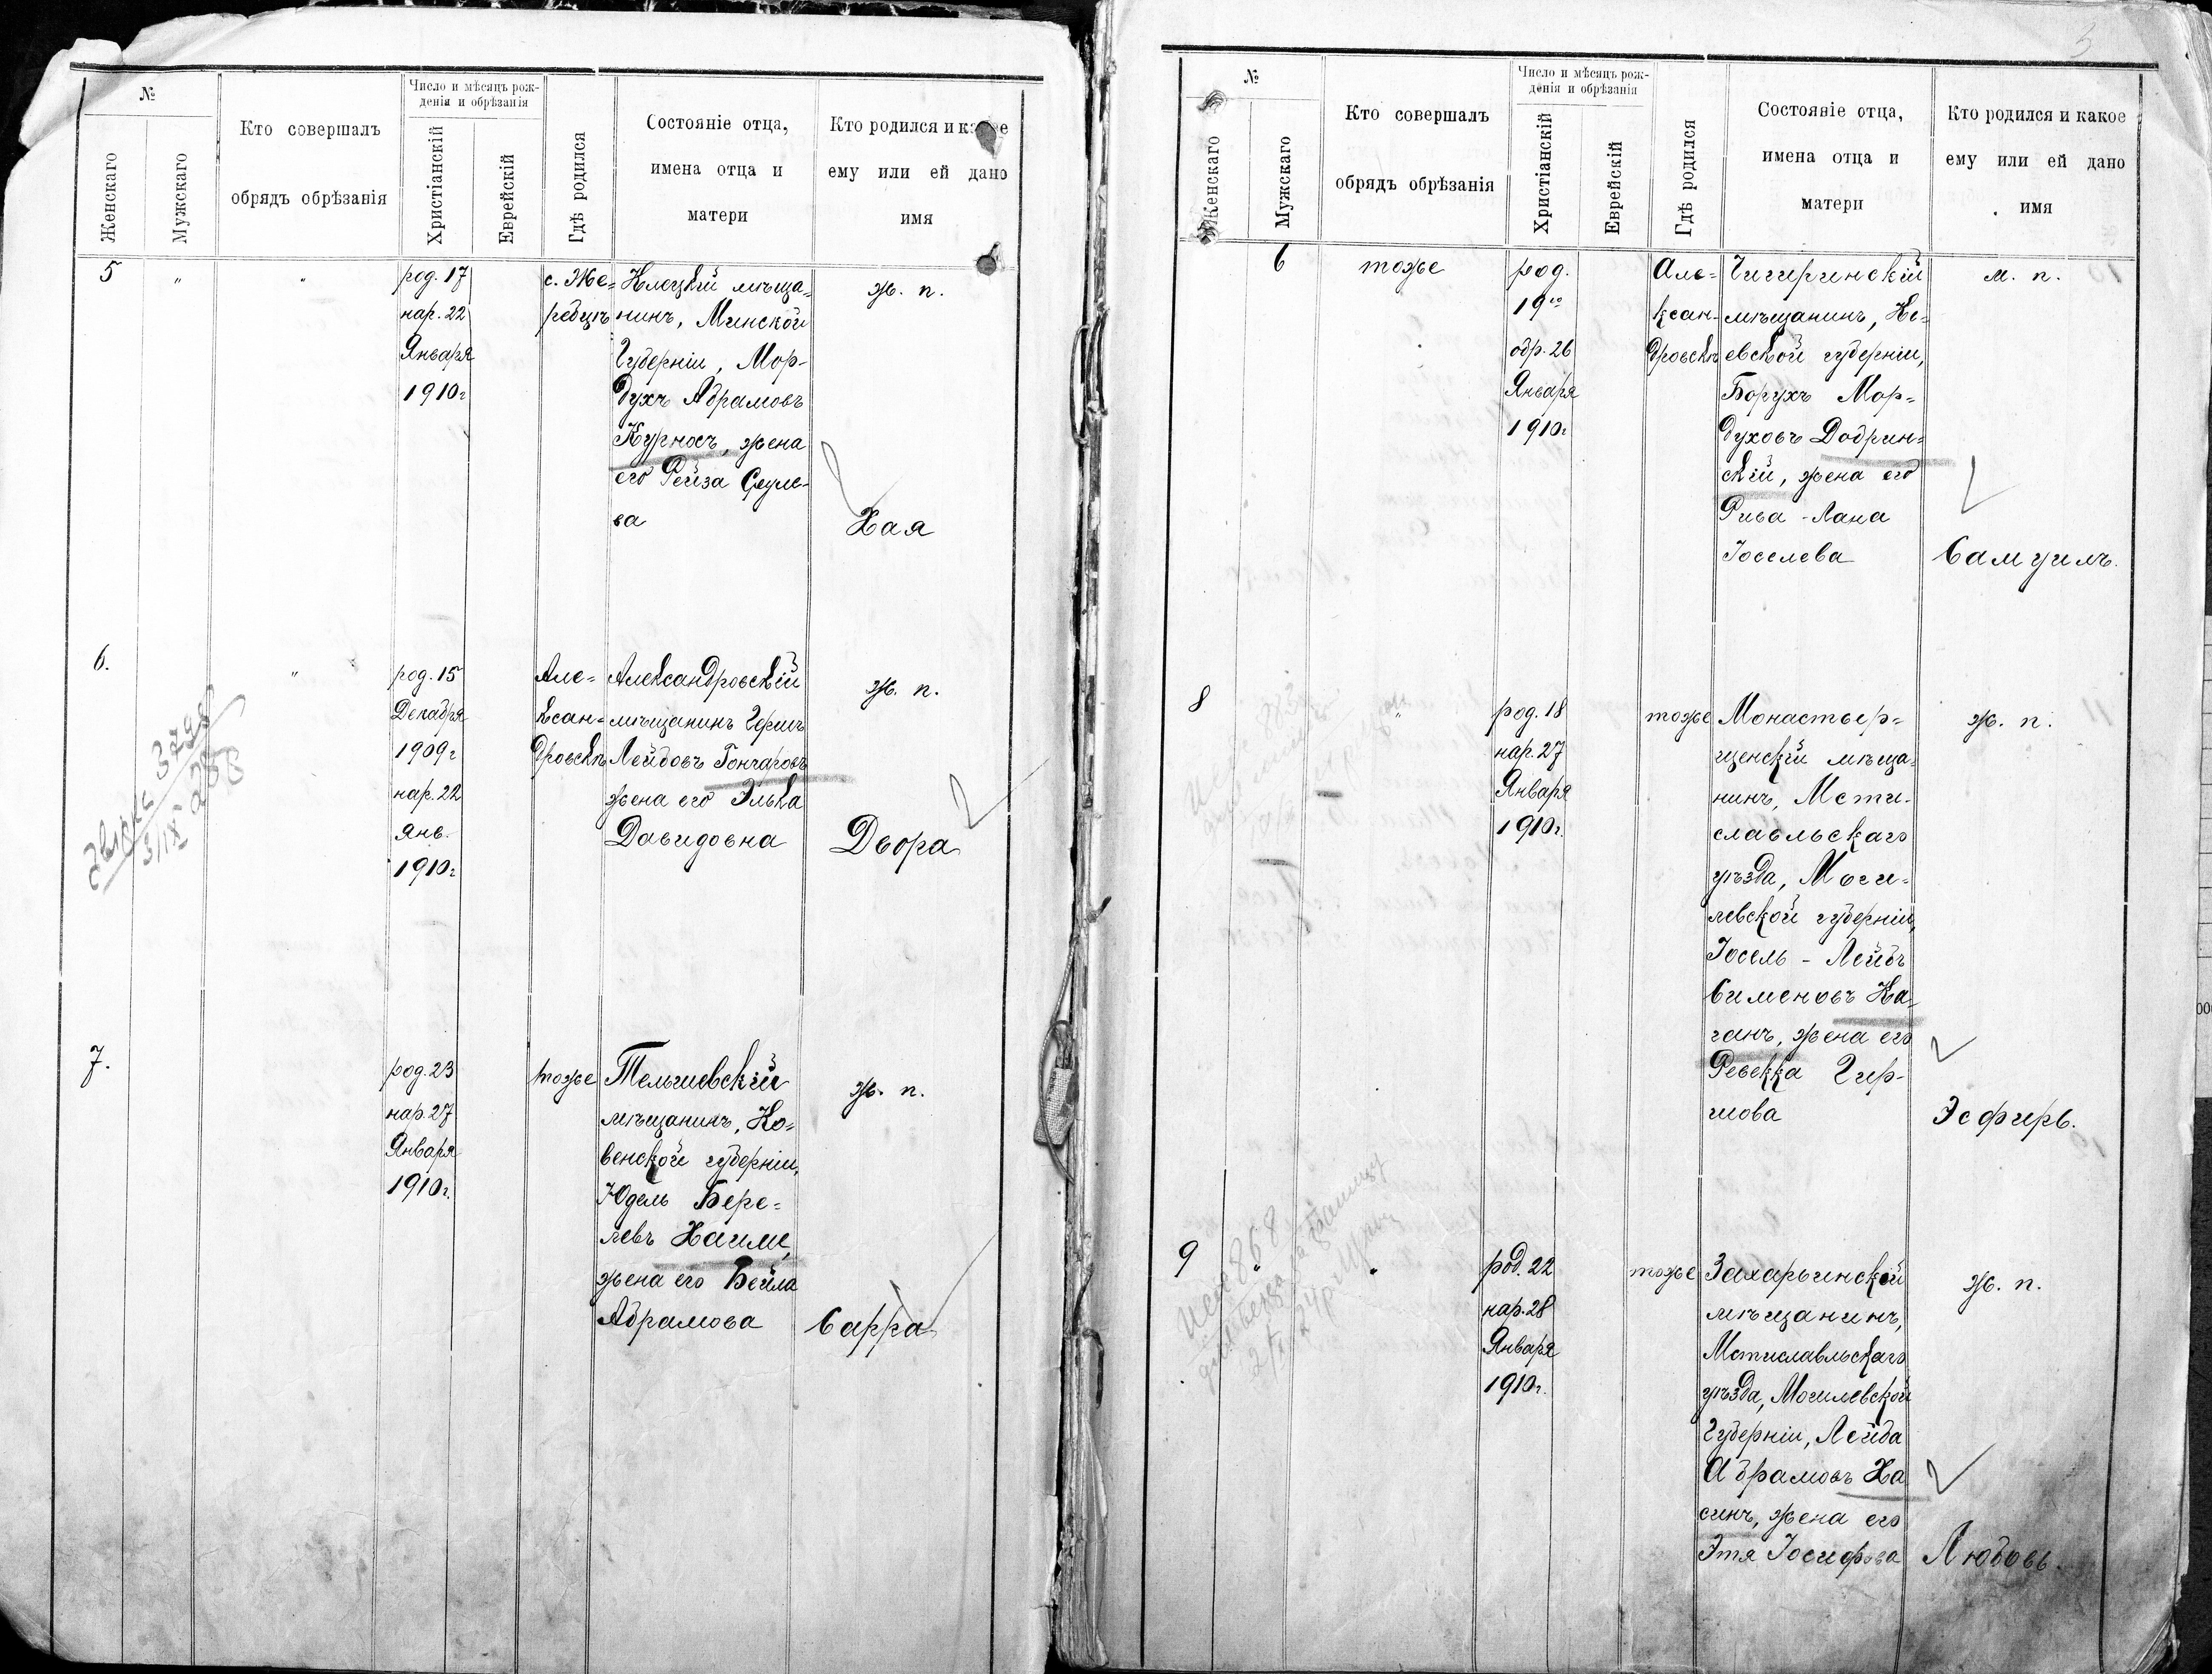 №
Женскаго
Мужскаго
Кто совершалъ
обрядъ обрѣзанія
Число и мѣсяцъ рож-
денія и обрѣзанія
Христіанскій
Еврейскій
Гдѣ родился
Состояніе отца,
имена отца и
матери
Кто родился и какое
ему или ей дано
имя
5
"
"
род. 17
нар. 22
Января
1910г
с. Же=
ребцѣ
Клецкій мѣща=
нинъ, Минской
Губерніи, Мор-
духъ Абрамовъ
Курносъ, жена
его Рейза Сруле-
ва
ж. п.
Хая
6.
"
род. 15
Декабря
1909г
нар. 22
Янв.
1910г
Але=
ксан=
дровскѣ
Александровскій
мѣщанинъ Гершъ
Лейбовъ Гончаровъ
жена его Элька
Давидовна
ж. п.
Двора
7.
род. 23
нар. 27
Января
1910г.
тоже
Тельшевскій
мѣщанинъ, Ко=
венской губерніи,
Юдель Бере=
левъ Хаимъ,
жена его Бейла
Абрамова
ж. п.
Сарра
№
Женскаго
Мужскаго
Кто совершалъ
обрядъ обрѣзанія
Число и мѣсяцъ рож-
денія и обрѣзанія
Христіанскій
Еврейскій
Гдѣ родился
Состояніе отца,
имена отца и
матери
Кто родился и какое
ему или ей дано
имя
6
тоже
род.
19го
обр. 26
Января
1910г
Але-
ксан-
дровскѣ
Чигиринскій
мѣщанинъ, Кі-
евской губерніи,
Борухъ Мор=
духовъ Добрин=
скій, жена его
Рива-Лана
Іоселева
м. п.
Самуилъ.
8
"
род. 18
нар. 27
Января
1910г.
тоже
Монастыр=
щенскій мѣща=
нинъ, Мсти-
славльскаго
уѣзда, Моги-
левской губерніи,
Іосель-Лейбъ
Симоновъ Ка-
ганъ, жена его
Ревекка Гир-
шова
ж. п.
Эсфирь.
9
"
"
род. 22
нар. 28
Января
1910г.
тоже
Захарьинскій
мѣщанинъ,
Мстиславльскаго
уѣзда, Могилевской
Губерніи, Лейба
Абрамовъ Ха
синъ, жена его
Этя Іосифова
ж. п.
Любовь.